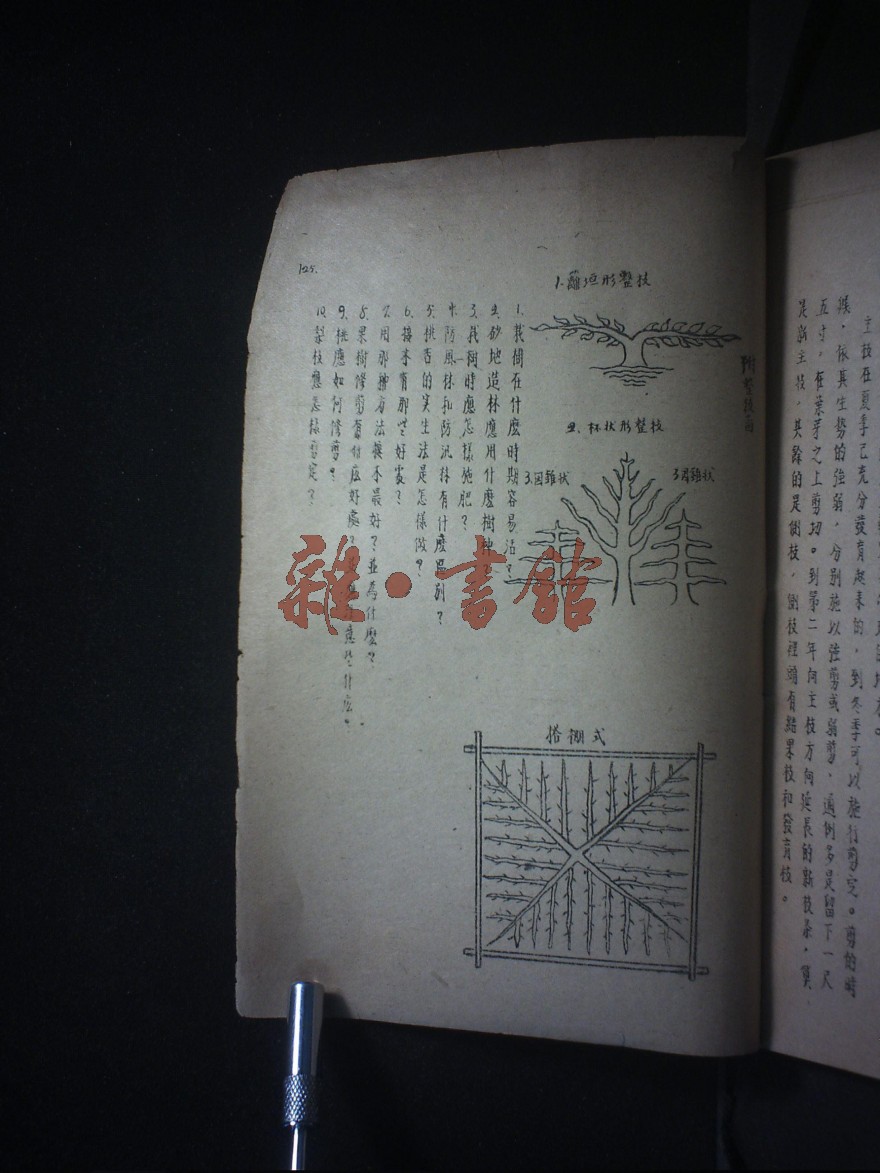 主枝在夏季已充分發育起来的，到冬季可以施行剪定。剪的時
候，依其生势的強弱，分别施以強剪或弱剪，通例多是留下一尺
五寸。在葉芽之上剪切。到第二年向主枝方向延長的新枝条，算
是新主枝，其餘的是側枝，側枝裡頭有結果枝和發育枝。
附整枝
1.籬垣形整枝
2、杯状形整枝
3.圆錐状
3.圆錐状
搭棚式
1、栽樹在什麽時期容易活？
2、砂地造林應用什麽樹種
3、栽樹時應怎樣施肥？
4、防風林和防汎林有什麽區别？
5、桃杏的実生法是怎樣做？
6、接木有那些好處？
7、用那種方法接木最好？並為什麽？
8、果樹修剪有什庅好處？意些什庅？
9、桃應如何修剪？
10、梨枝應怎樣剪定？
125.
雜·書館